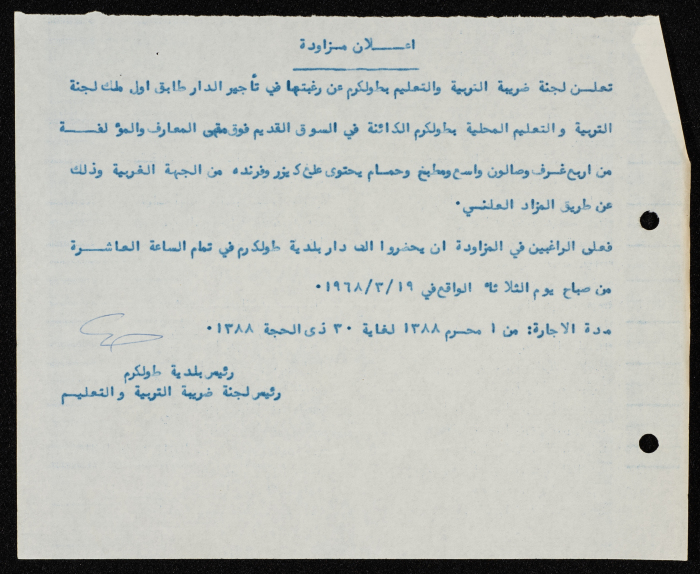 اعلان مزاودة
تعلن لجنة ضريبة التربية والتعليم بطولكرم عن رغبتها في تأجير الدار طابق اول ملك لجنة
التربية والتعليم المحلية بطولكرم الكائنة في السوق القديم فوق مقهى المعارف والمؤلفة
من اربع غرف وصالون واسع ومطبخ وحمام يحتوى على كيزر وفرنده من الجهة الغربية وذلك
عن طريق المزاد العلني.
فعلى الراغبين في المزاودة ان يحضروا الى دار بلدية طولكرم في تمام الساعة العاشرة
من صباح يوم الثلاثاء الواقع في ١٩/٣/١٩٦٨.
مدة الاجارة: من ١ محرم ١٣٨٨ لغاية ٣٠ ذى الحجة ١٣٨٨.
رئيس بلدية طولكرم
رئيس لجنة ضريبة التربية والتعليم